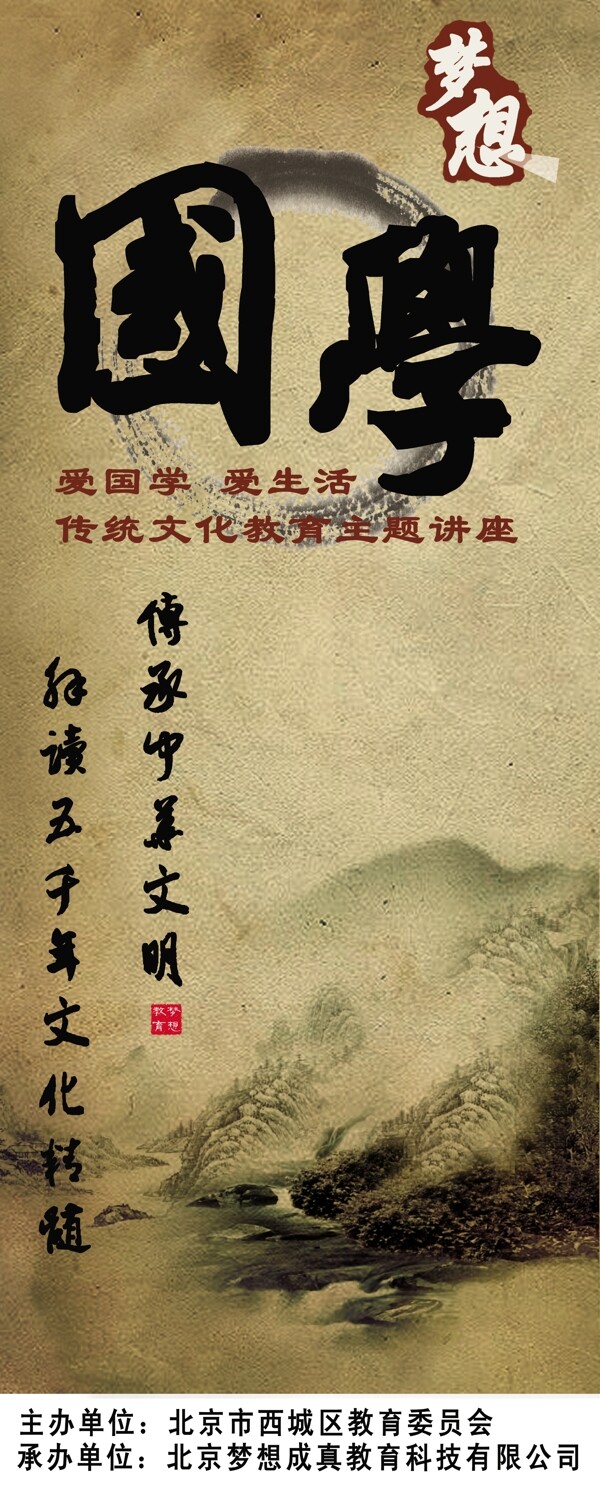 梦想
國學
爱国学 爱生活
传统文化教育主题讲座
傳承中華文明
解讀五千年文化精髓
梦想
教育
主办单位：北京市西城区教育委员会
承办单位：北京梦想成真教育科技有限公司